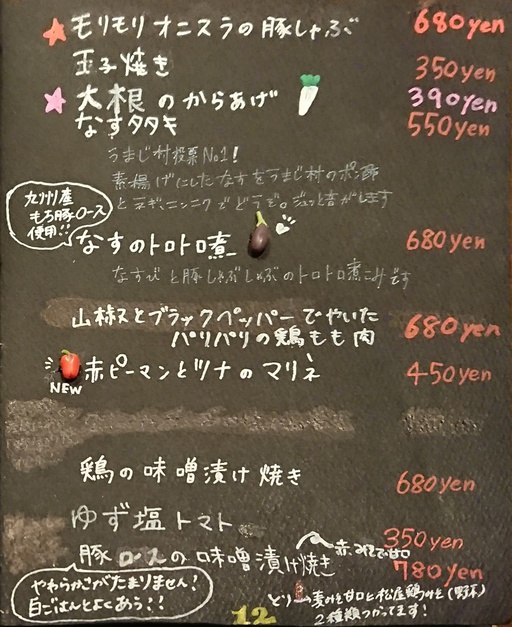 モリモリオニスラの豚しゃぶ 680yen
玉子焼き 350yen
大根のからあげ 390yen
なすタタキ 550yen
うまじ村投票No1!
素揚げにしたなすをうまじ村のポン酢
とネギ、ニンニクでどうぞ。ジュッと音がします
九州産
もち豚ロース
使用!!
なすのトロトロ煮 680yen
なすびと豚しゃぶしゃぶのトロトロ煮こみです
山椒とブラックペッパーでやいた
パリパリの鶏もも肉 680yen
NEW
赤ピーマンとツナのマリネ 450yen
鶏の味噌漬け焼き 680yen
ゆず塩トマト 350yen
豚ロースの味噌漬け焼き 780yen
やわらかさがたまりません!
白ごはんとよくあう!!
2種類つかってます!
12